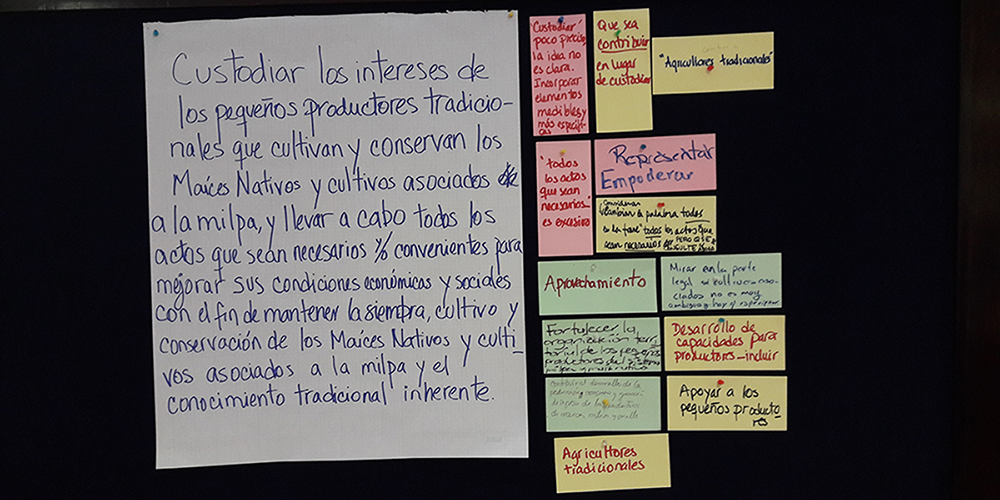 Custodiar los intereses de
los pequeños productores tradicio-
nales que cultivan y conservan los
Maíces Nativos y cultivos asociados
a la milpa, y llevar a cabo todos los
actos que sean necesarios y/o convenientes para
mejorar sus condiciones económicas y sociales
con el fin de mantener la siembra, cultivo y
conservación de los Maíces Nativos y culti-
vos asociados a la milpa y el
conocimiento tradicional inherente.
"Custodiar"
poco preciso,
la idia no
es clara.
Incorporar
elementos
medibles y
más específi-
cos
Que sea
contribuir
en lugar
de custodiar
"Agricultores tradicionales"
"todos
los actos
que sean
necesarios"
es excesivo
Representar
Empoderar
Considerar
cambiar la palabra todos
en la frase "todos los actos que
sean necesarios
Aprovechamiento
Mirar en la parte
legal si cultivos aso-
ciados no es muy
ambiguo y hay q especificar
Fortalecer la
organización terri-
torial de los pequeños
productores del sistema
milpa
Desarrollo de
capacidades para
productores-incluir
contribuir al desarrollo de la
Apoyar a los
pequeños producto-
res
Agricultores
tradicionales